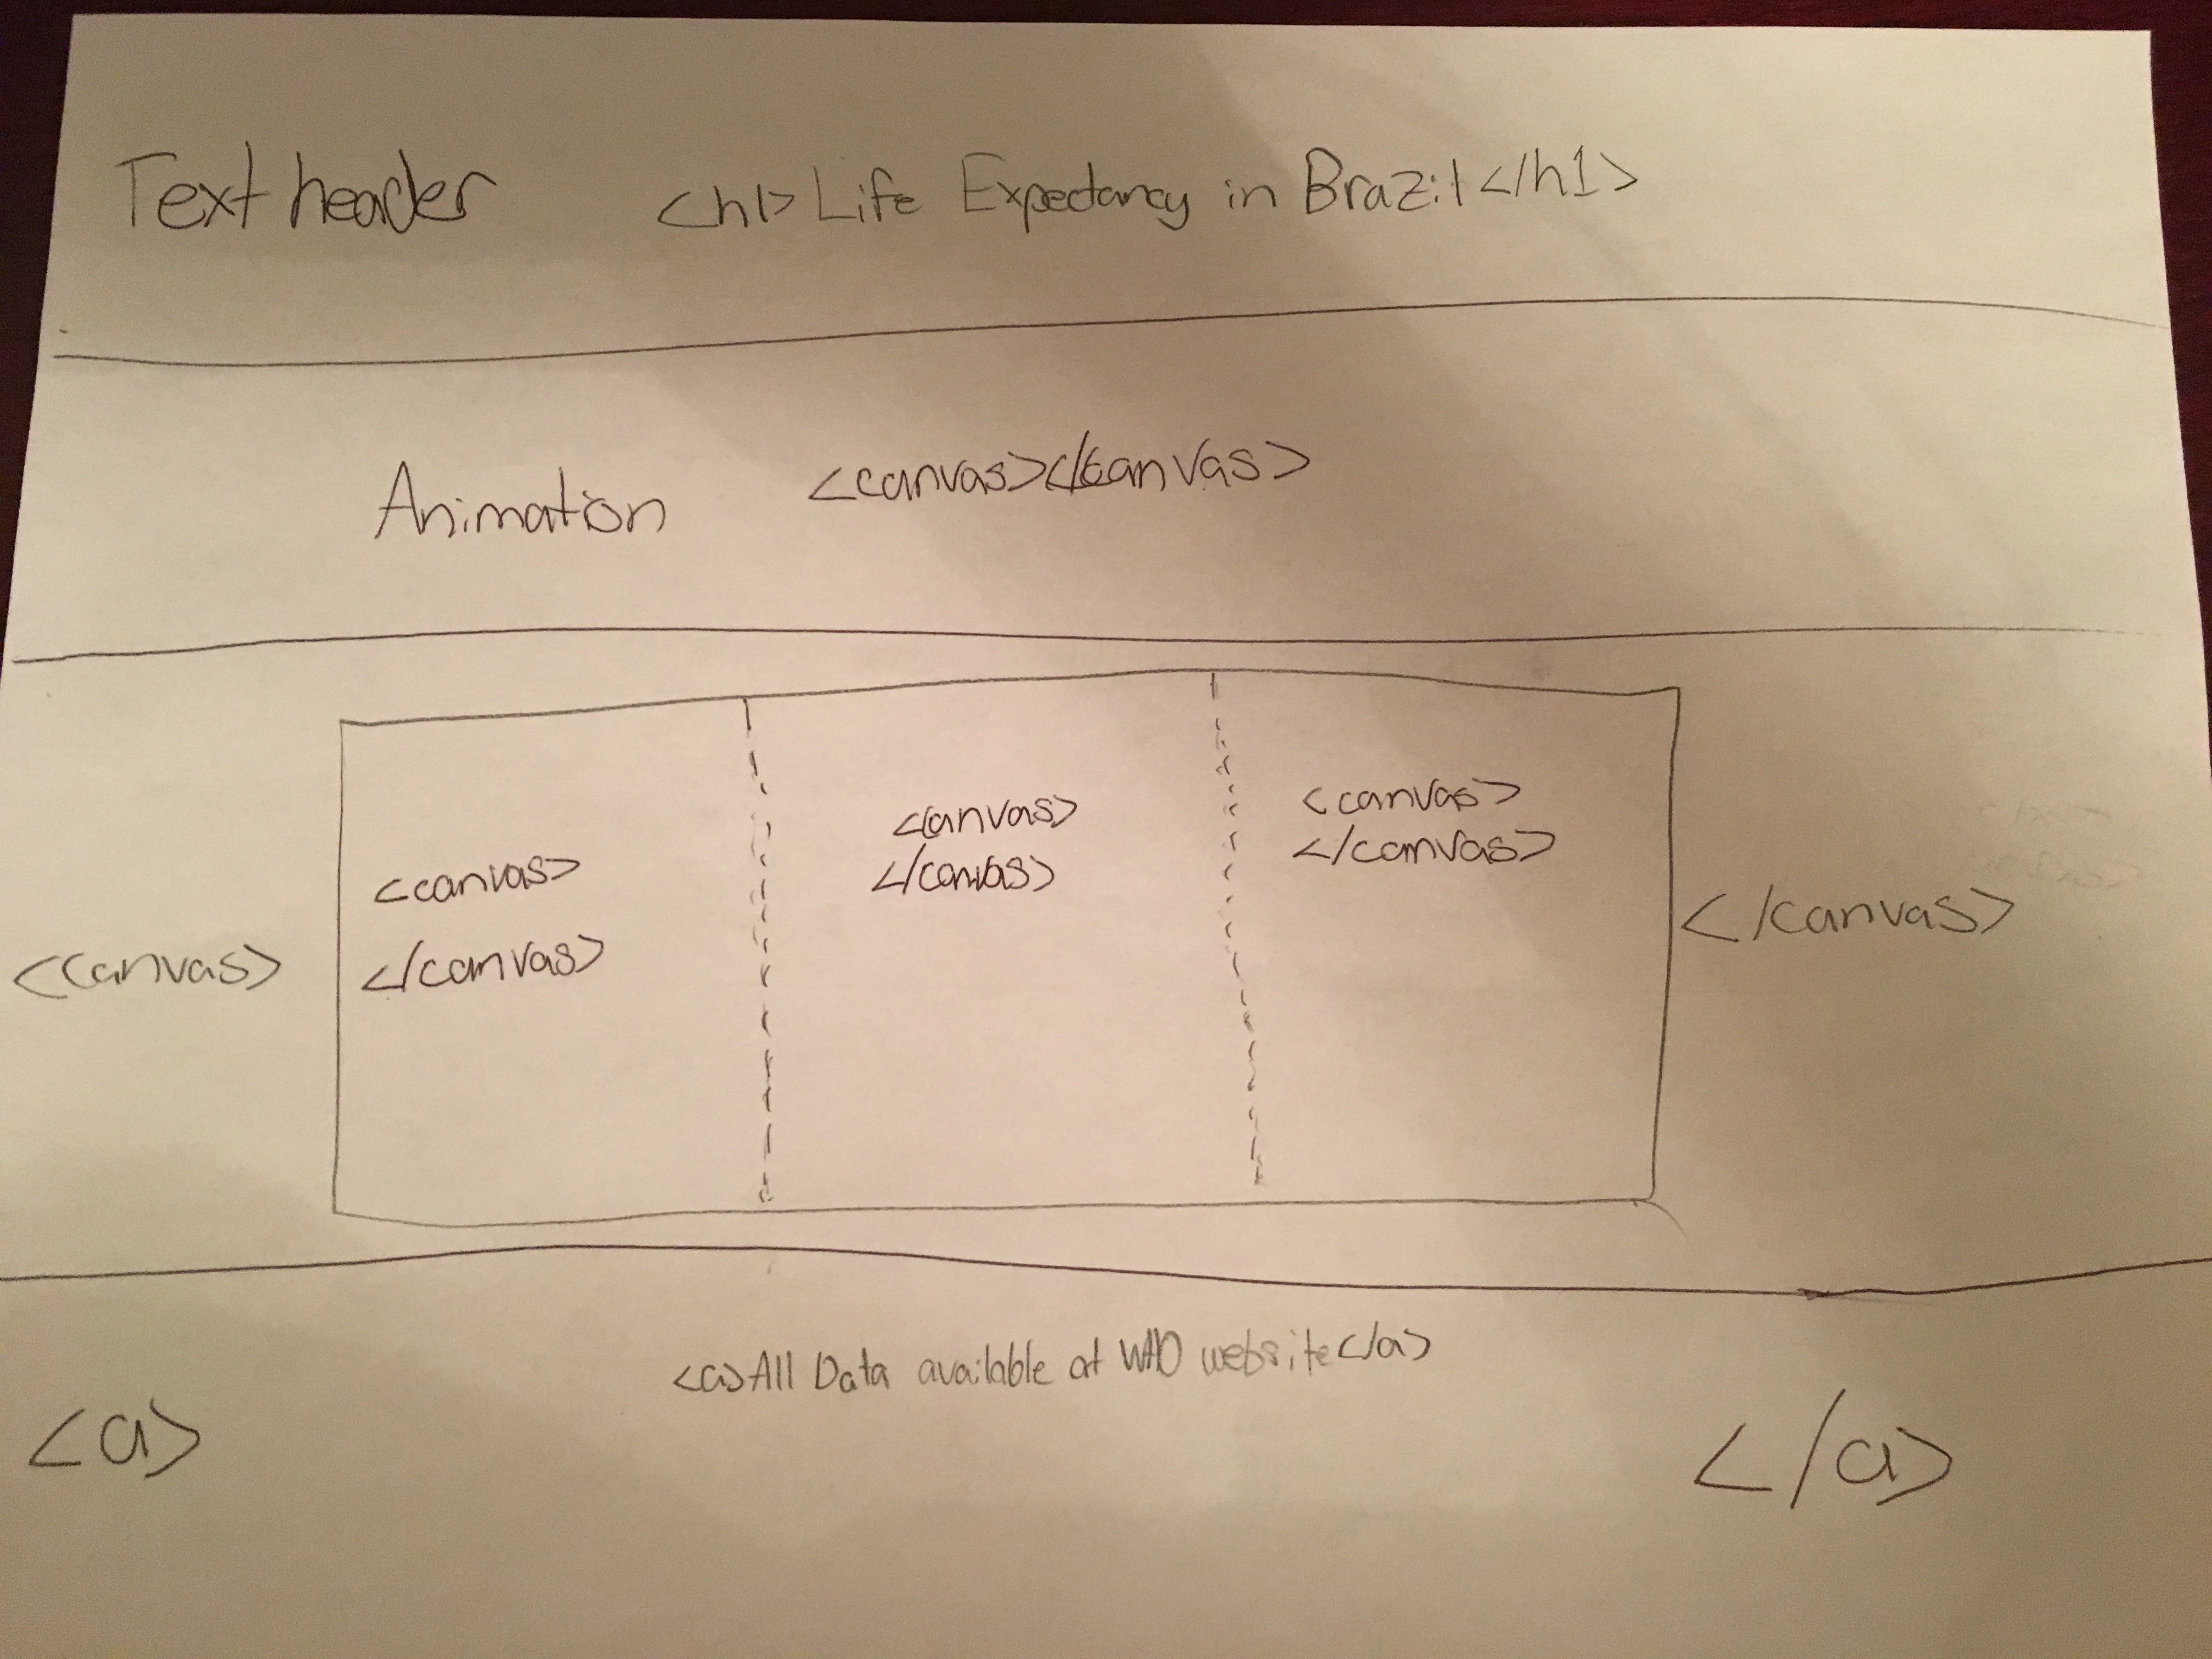 Text header <h1>Life Expectancy in Brazil</h1>
Animation <canvas></canvas>
<canvas>
<canvas>
</canvas>
<canvas>
</canvas>
<canvas>
</canvas>
</canvas>
<a>All Data available at WHO website</a>
<a>
</a>